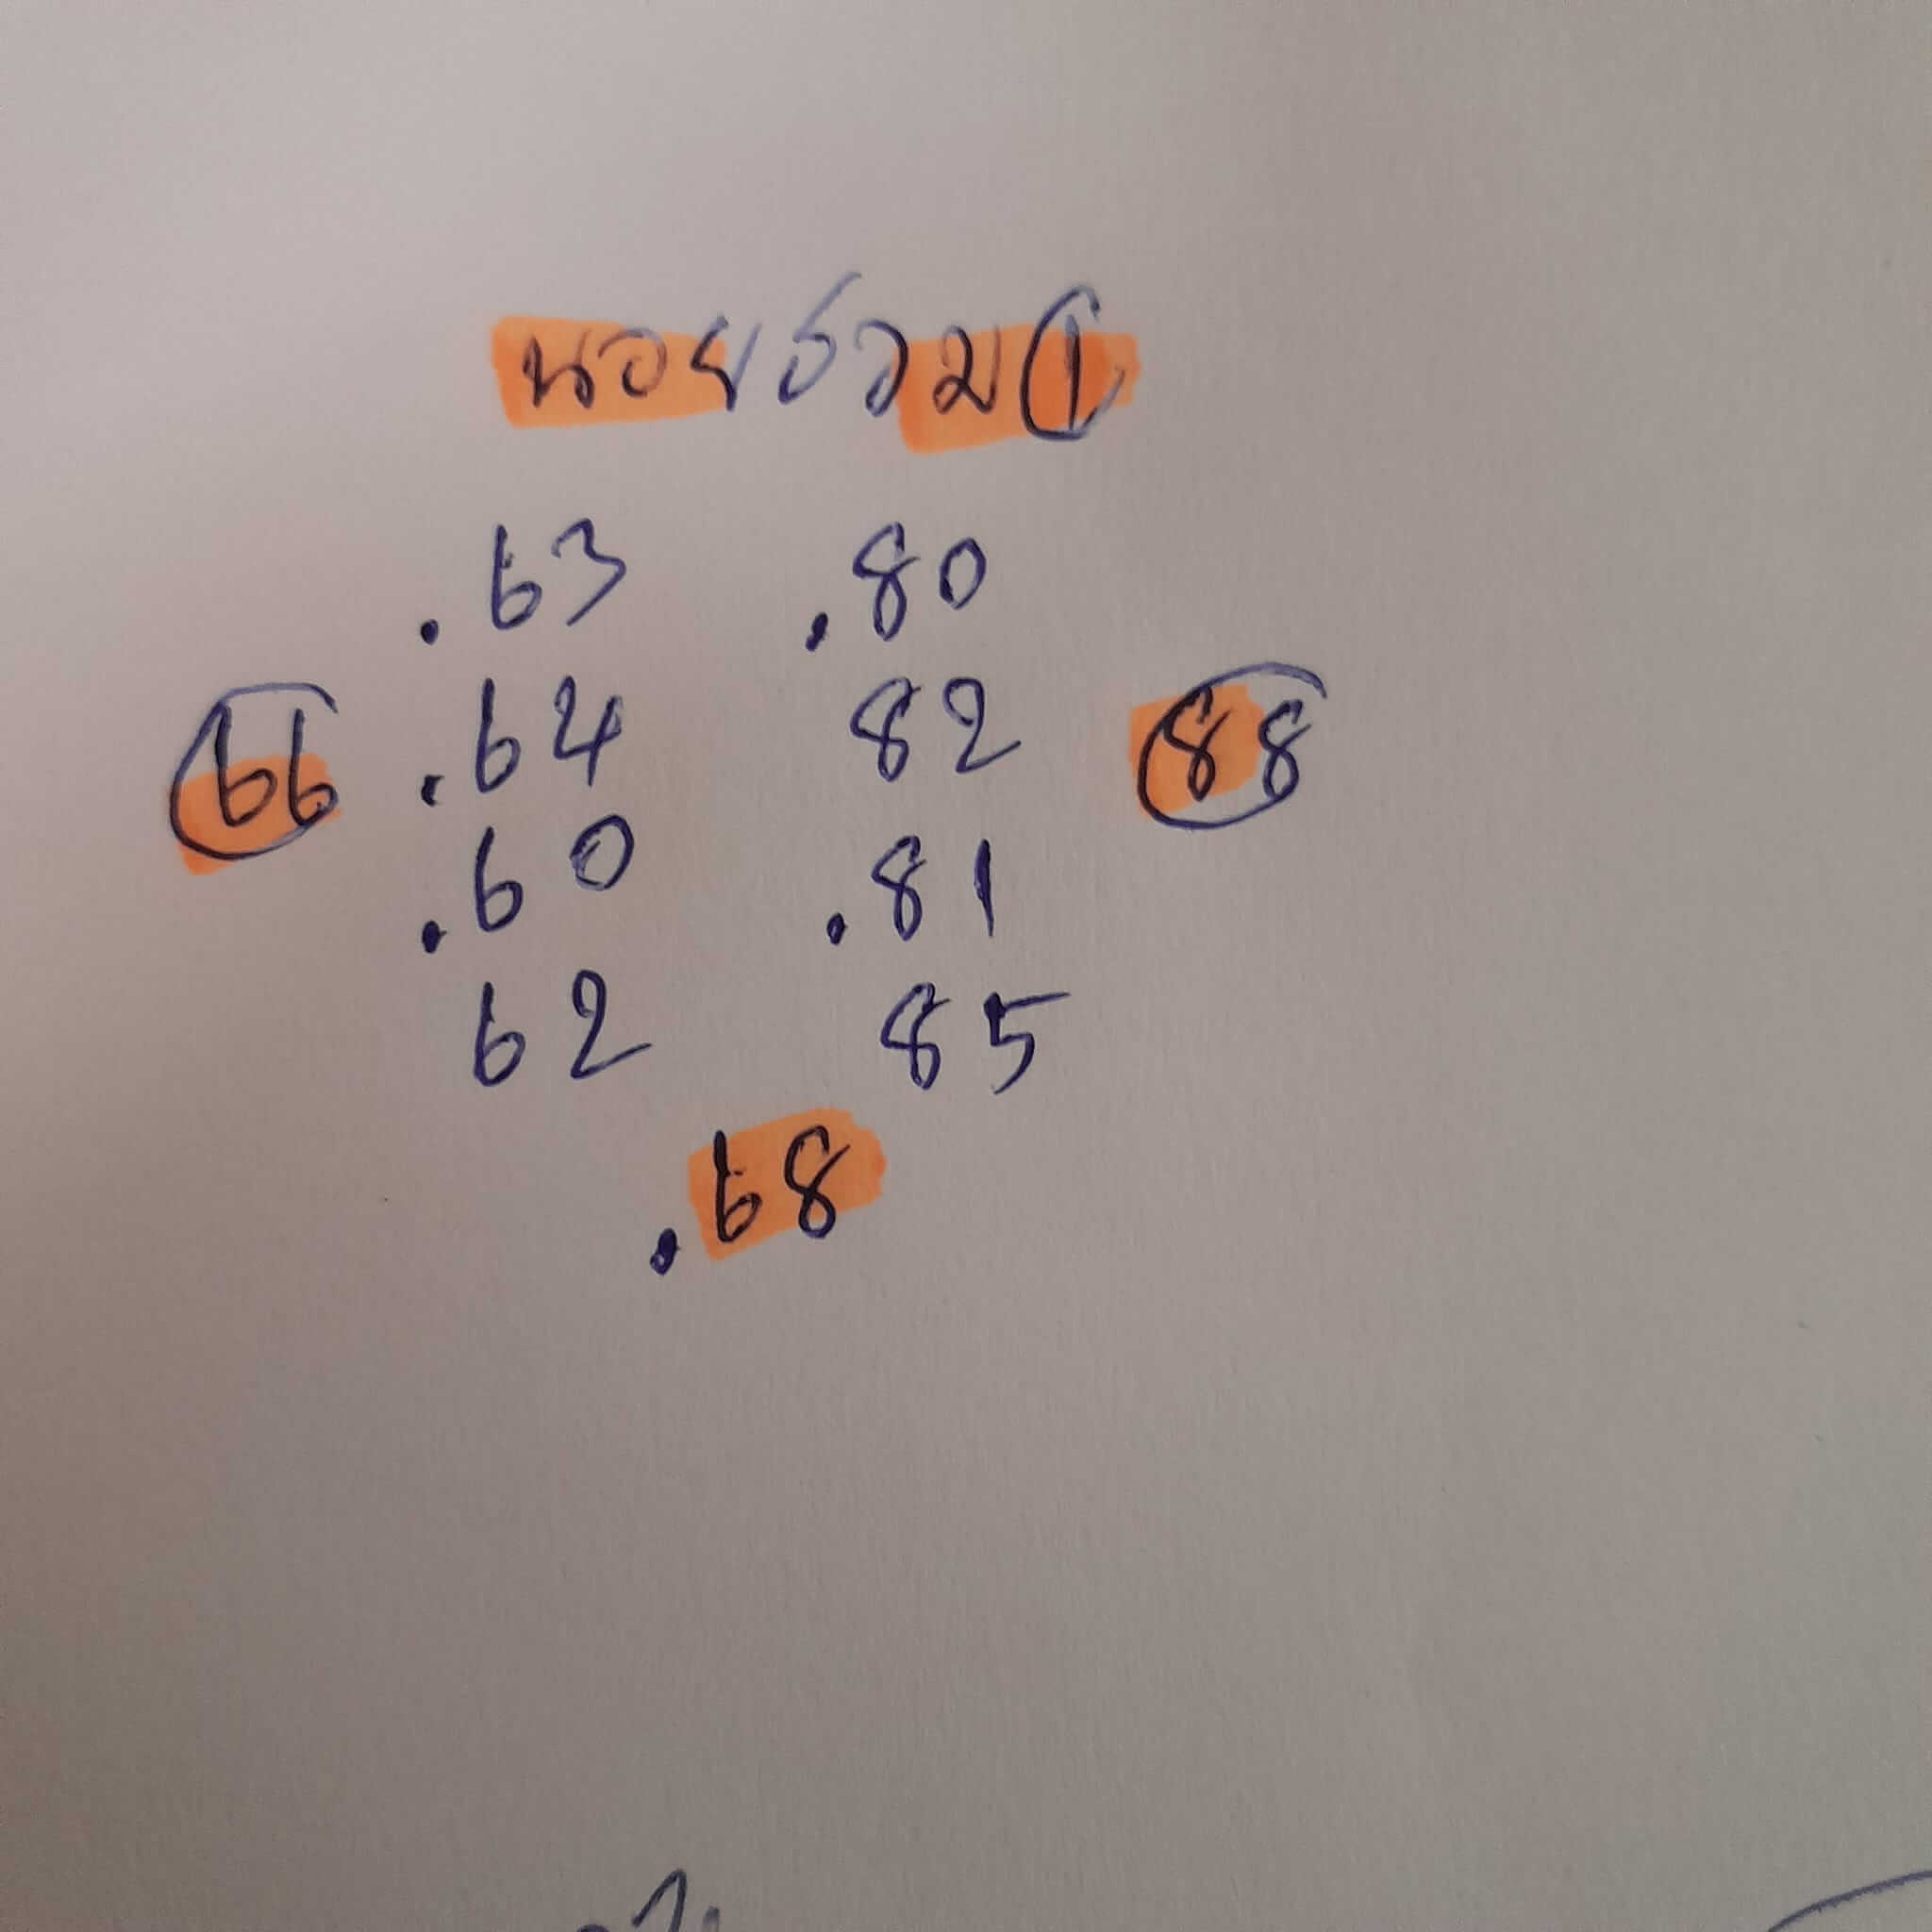 นอยรวม 1
.63 .80
66 .64 82 88
.60 .81
62 85
.68